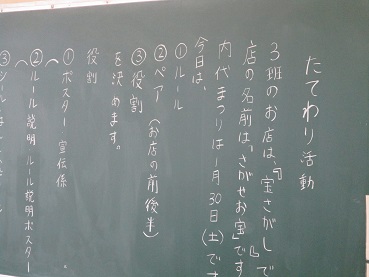 たてわり活動
3班のお店は、『宝さがし』で
店の名前は、「さがせお宝」です
内代まつりは1月30日(土)です
今日は、
①ルール
②ペア(お店の前後半)
③役割
を決めます。
役割
①ポスター 宣伝係
(
②ルール説明 ルール説明ポスター
(